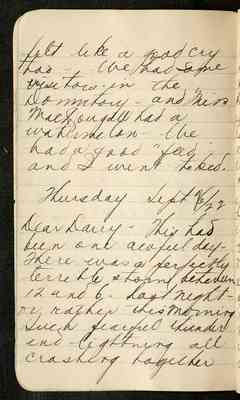 felt like a good cry
too - We had some
visitors in the
Dormitory - and Miss
MacDougall had a
watermelon - We
had a good "feed"
and I went to bed.
Thursday Sept 6/
Dear Dairy - This had
been one awful day -
There was a perfectly
terrible storm between
12 and 6 - Last night -
or, rather this morning
Such fearful thunder
and lightning all
crashing together